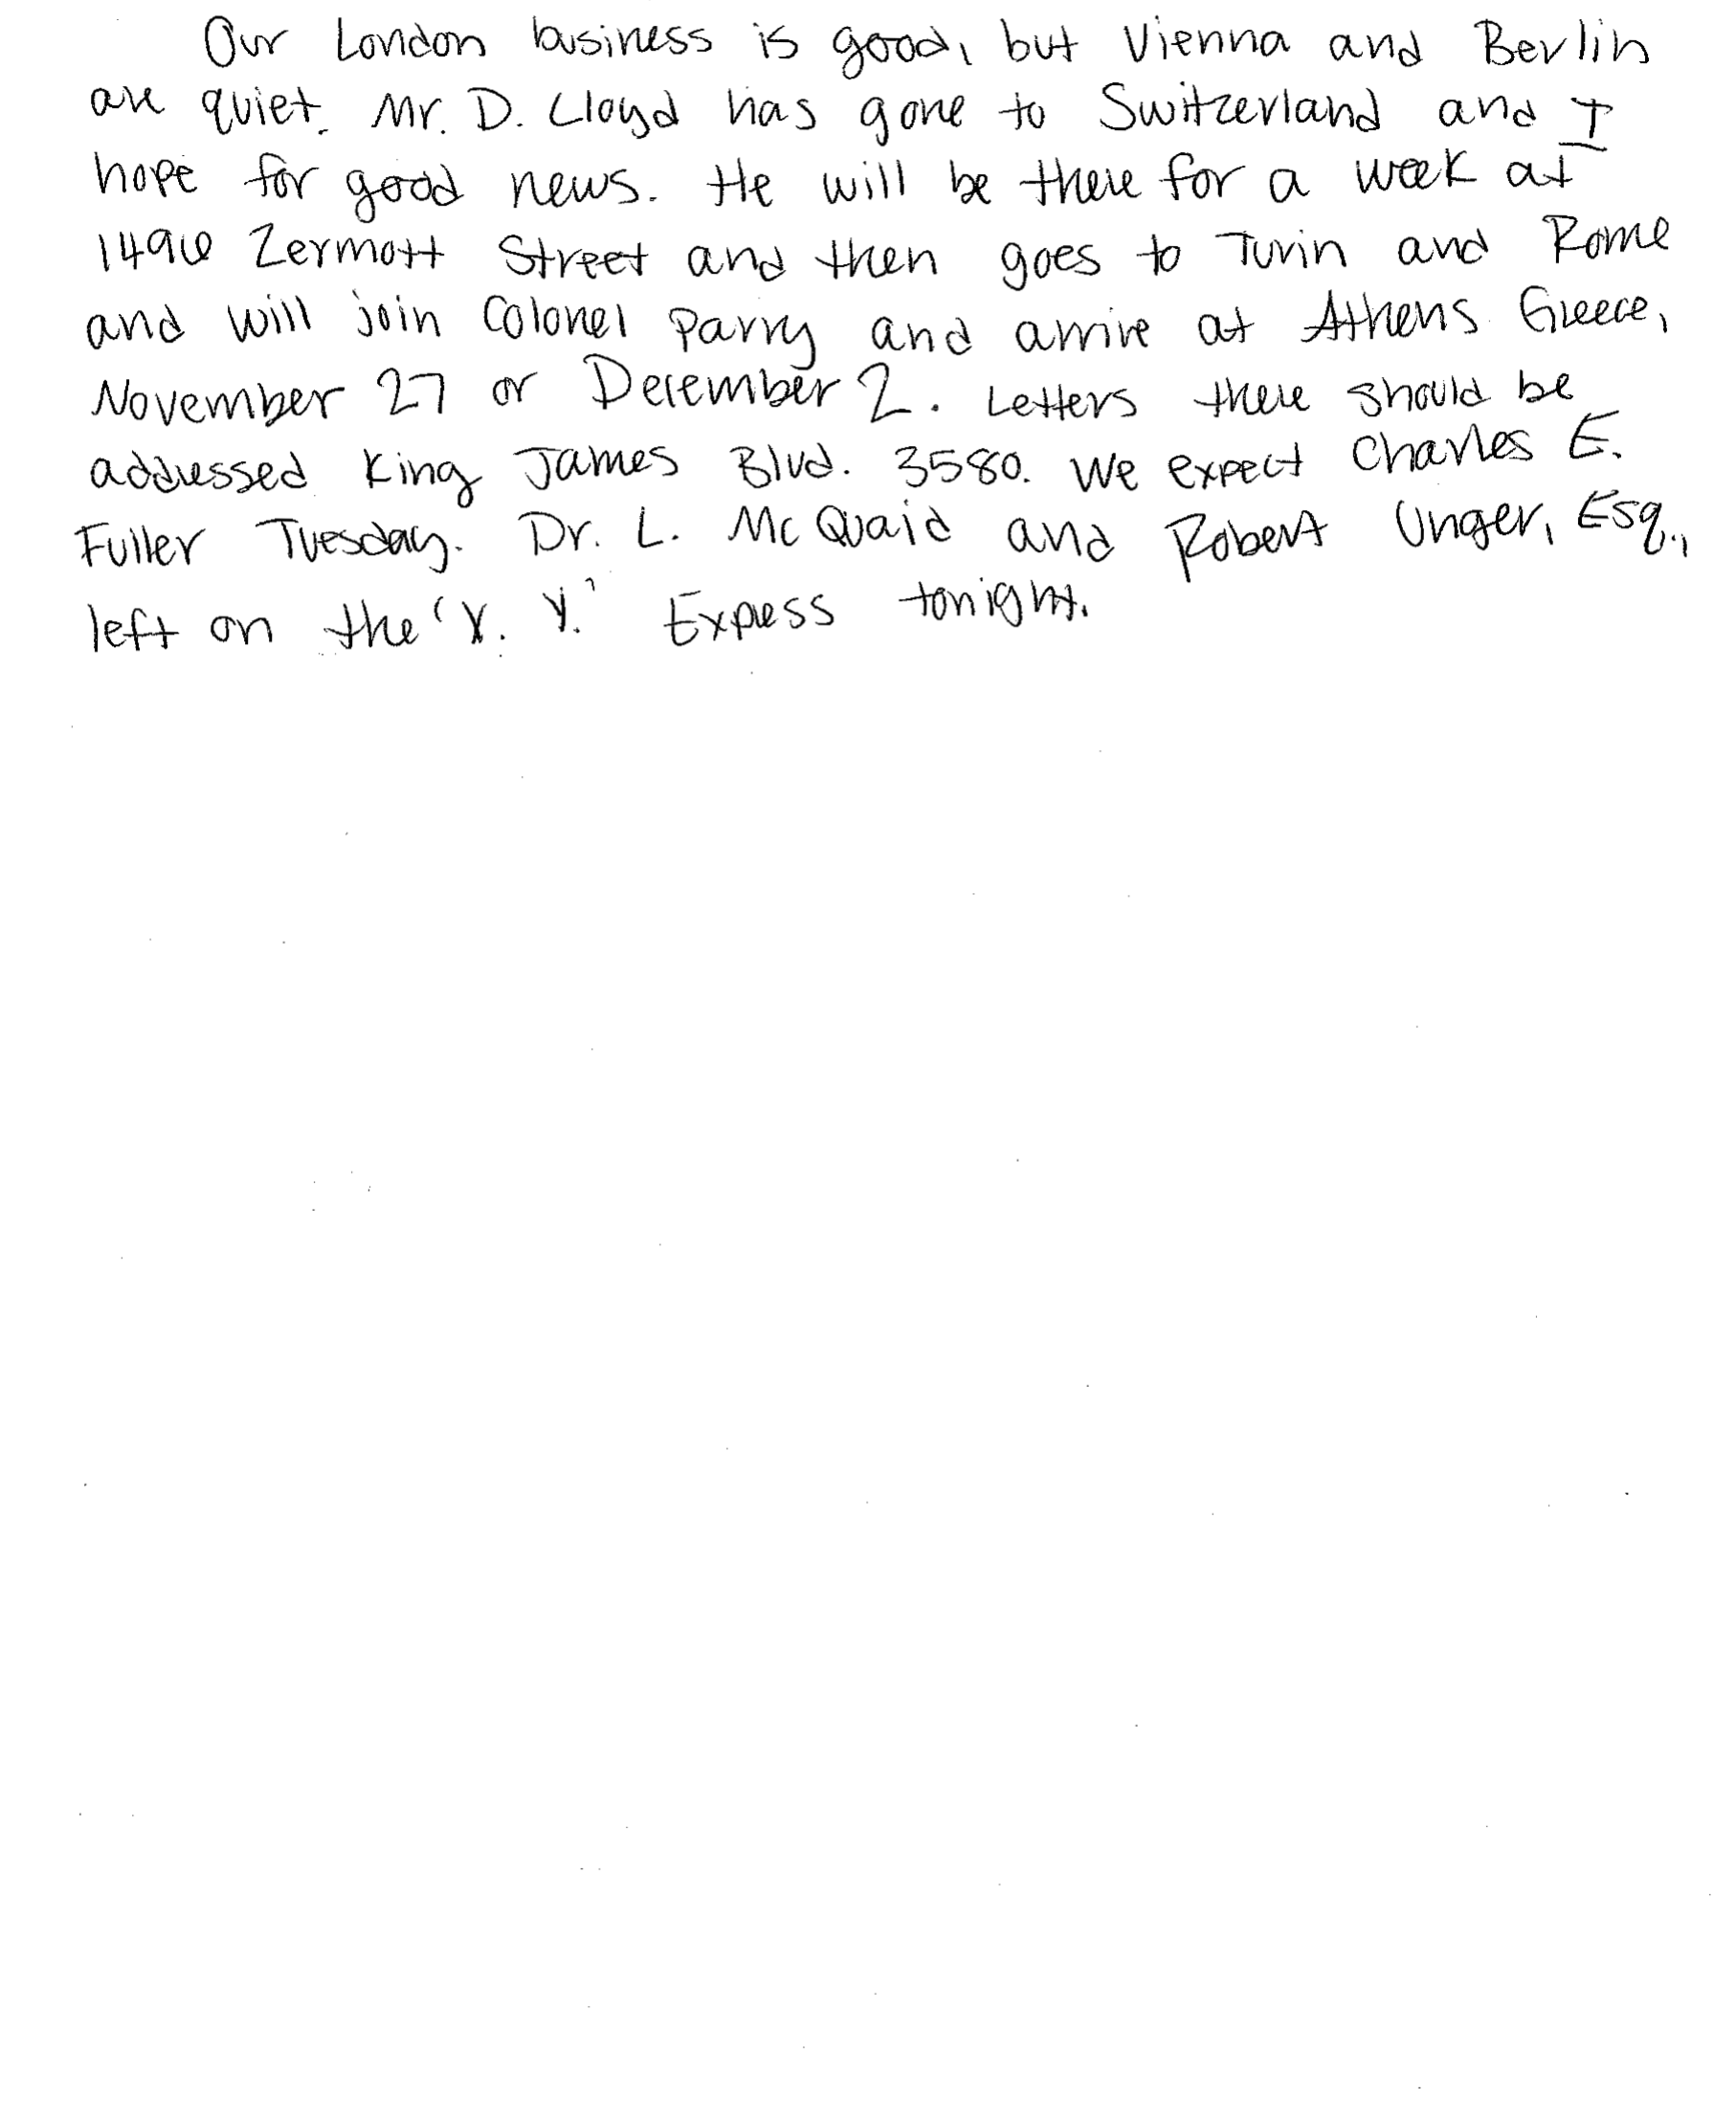 Our London business is good, but Vienna and Berlin
are quiet. Mr. D. Lloyd has gone to Switzerland and I
hope for good news. He will be there for a week at
1496 Zermott Street and then goes to Turin and Rome
and will join Colonel Parry and arrive at Athens Greece,
November 27 or December 2. Letters there should be
addressed King James Blvd. 3580. We expect Charles E.
Fuller Tuesday. Dr. L. McQuaid and Robert Unger, Esq.,
left on the 'Y. Y.' Express tonight.